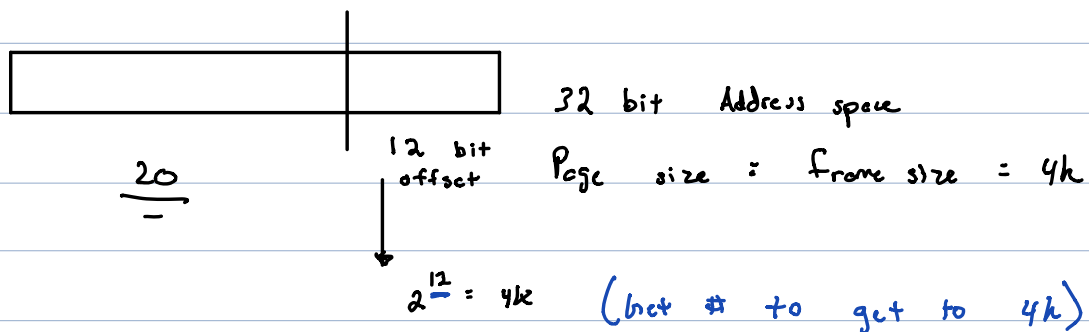 32 bit Address space
12 bit
offset
20
Page size = frame size = 4k
2^12 = 4k
(bit # to get to 4k)